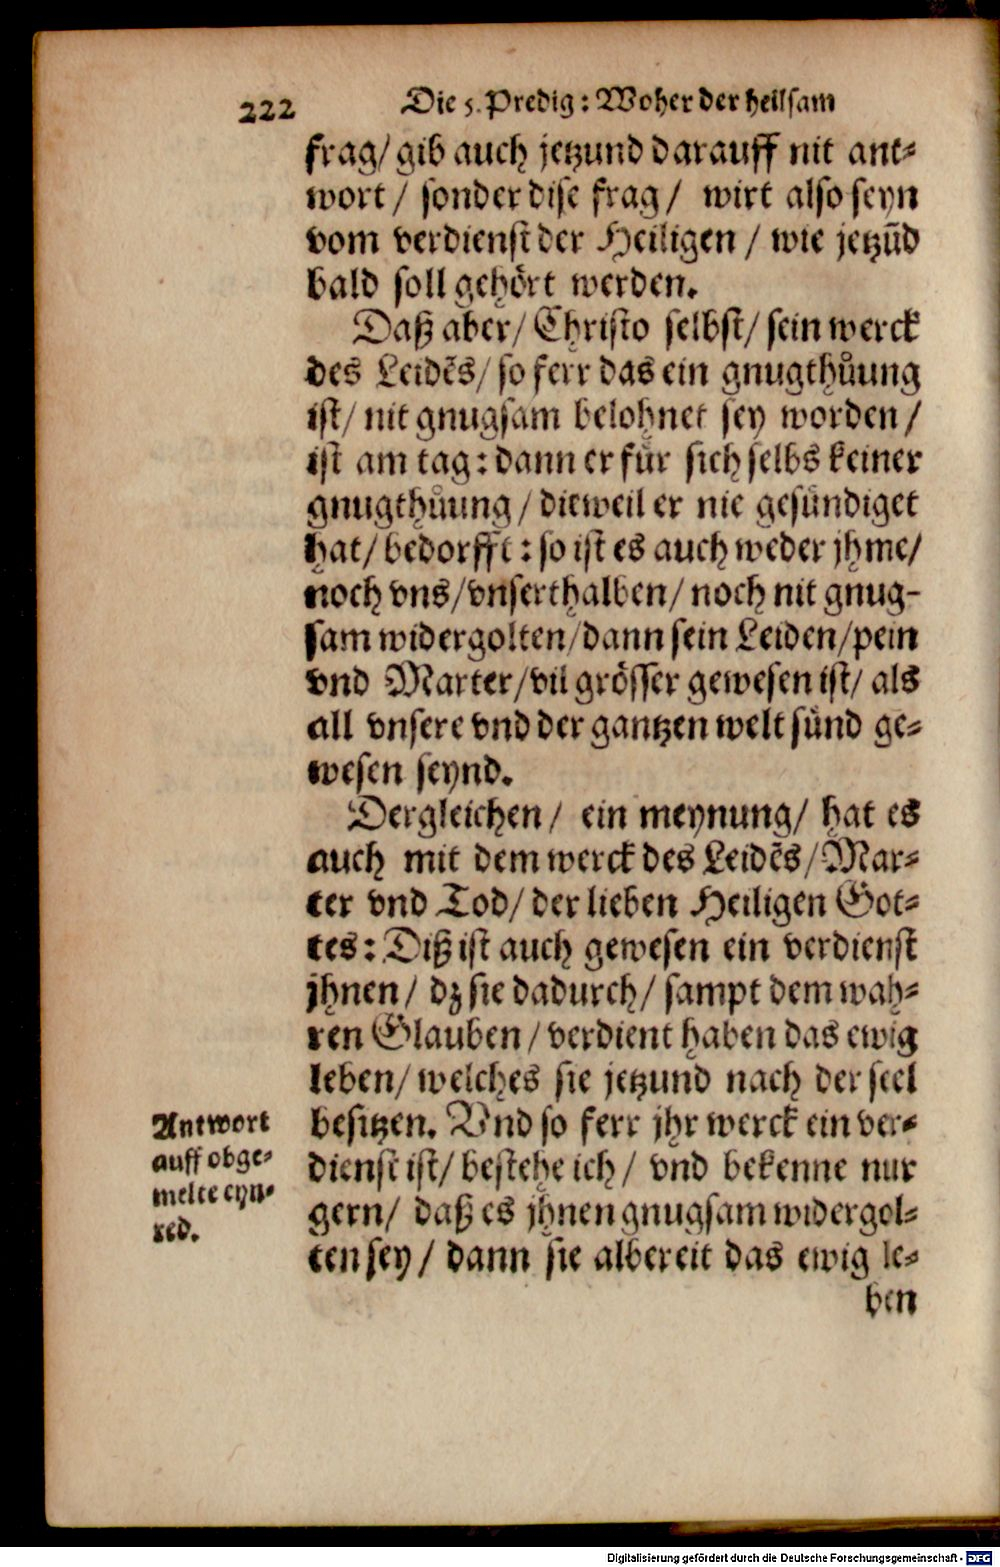 222 Die 5. Predig: Woher der heilsam
frag/ gib auch jetzund darauff nit ant⸗
wort/ sonder dise frag/ wirt also seyn
vom verdienst der Heiligen/ wie jetzũd
bald soll gehört werden.
Daß aber/ Christo selbst/ sein werck
des Leidẽs/ so ferr das ein gnugthůung
ist/ nit gnugsam belohnet sey worden/
ist am tag: dann er für sich selbs keiner
gnugthůung/ dieweil er nie gesündiget
hat/ bedorfft: so ist es auch weder jhme/
noch vns/ vnserthalben/ noch nit gnug-
sam widergolten/ dann sein Leiden/ pein
vnd Marter/ vil grösser gewesen ist/ als
all vnsere vnd der gantzen welt sünd ge⸗
wesen seynd.
Dergleichen/ ein meynung/ hat es
auch mit dem werck des Leidẽs/ Mar⸗
ter vnd Tod/ der lieben Heiligen Got⸗
tes: Diß ist auch gewesen ein verdienst
jhnen/ dz sie dadurch/ sampt dem wah⸗
ren Glauben/ verdient haben das ewig
leben/ welches sie jetzund nach der seel
besitzen. Vnd so ferr jhr werck ein ver⸗
dienst ist/ bestehe ich/ vnd bekenne nur
gern/ daß es jhnen gnugsam widergol⸗
ten sey/ dann sie albereit das ewig le⸗
ben
Antwort
auff obge⸗
melte eyn⸗
red.
Digitalisierung gefördert durch die Deutsche Forschungsgemeinschaft - DFG